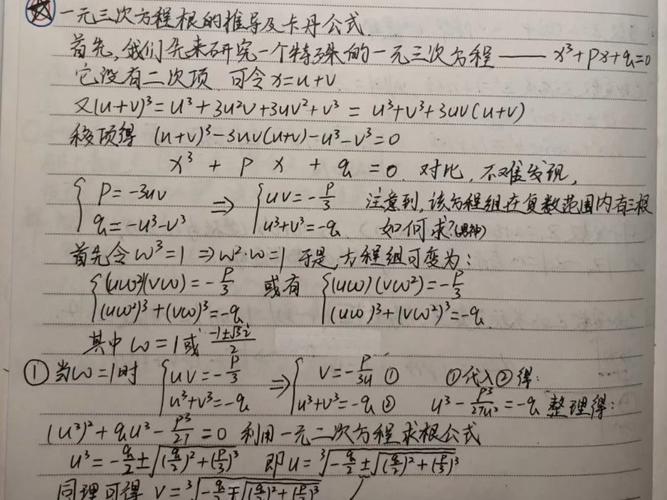 一元三次方程根的推导及卡丹公式
首先,我们先来研究一个特殊的一元三次方程——x³+px+q=0
它没有二次项 可令x=u+v
又(u+v)³=u³+3u²v+3uv²+v³=u³+v³+3uv(u+v)
移项得 (u+v)³-3uv(u+v)-u³-v³=0
x³+px+q=0 对比,不难发现,
{p=-3uv ⇒ {uv=-p/3 注意到,该方程组在复数范围内有三根
q=-u³-v³ u³+v³=-q 如何求?
首先令ω³=1⇒ω²·ω=1 于是,方程组可变为:
{(uω²)(vω)=-p/3 或有 {(uω)(vω²)=-p/3
(uω²)³+(vω)³=-q (uω)³+(vω²)³=-q
其中ω=1或(-1±√3i)/2
①当ω=1时 {uv=-p/3 ⇒ {v=-p/3u ① ①代入②得:
u³+v³=-q u³+v³=-q ② u³-p³/27u³=-q 整理得:
(u³)²+qu³-p³/27=0 利用一元二次方程求根公式
u³=-q/2±√((q/2)²+(p/3)³) 即u=³√(-q/2±√((q/2)²+(p/3)³))
同理可得 v=³√(-q/2∓√((q/2)²+(p/3)³))